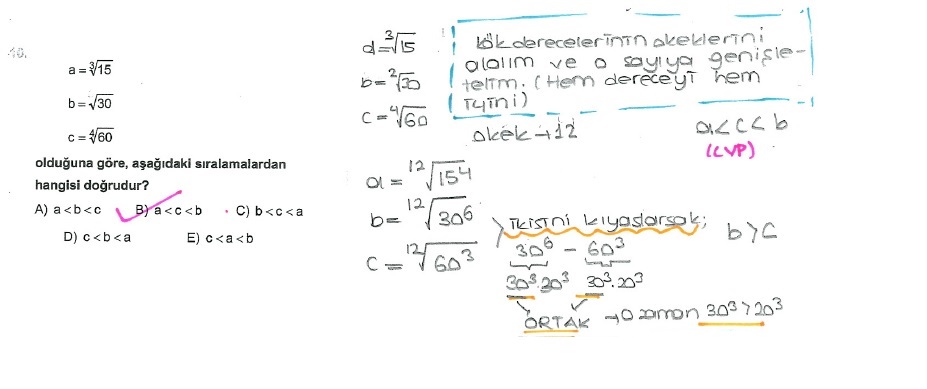 10.
a = ∛15
b = √30
c = ∜60
olduğuna göre, aşağıdaki sıralamalardan
hangisi doğrudur?
A) a<b<c B) a<c<b C) b<c<a
D) c<b<a E) c<a<b
a=∛15
b=²√30
c=∜60
! kök derecelerinin okeklerini
alalım ve o sayıya genişle-
telim. (Hem dereceyi hem
içini)
okek → 12
a<c<b
(CVP)
a = ¹²√15⁴
b = ¹²√30⁶
c = ¹²√60³
> ikisini kıyaslarsak; b>c
30⁶ - 60³
30³.20³ 30³.20³
ORTAK → o zaman 30³>20³